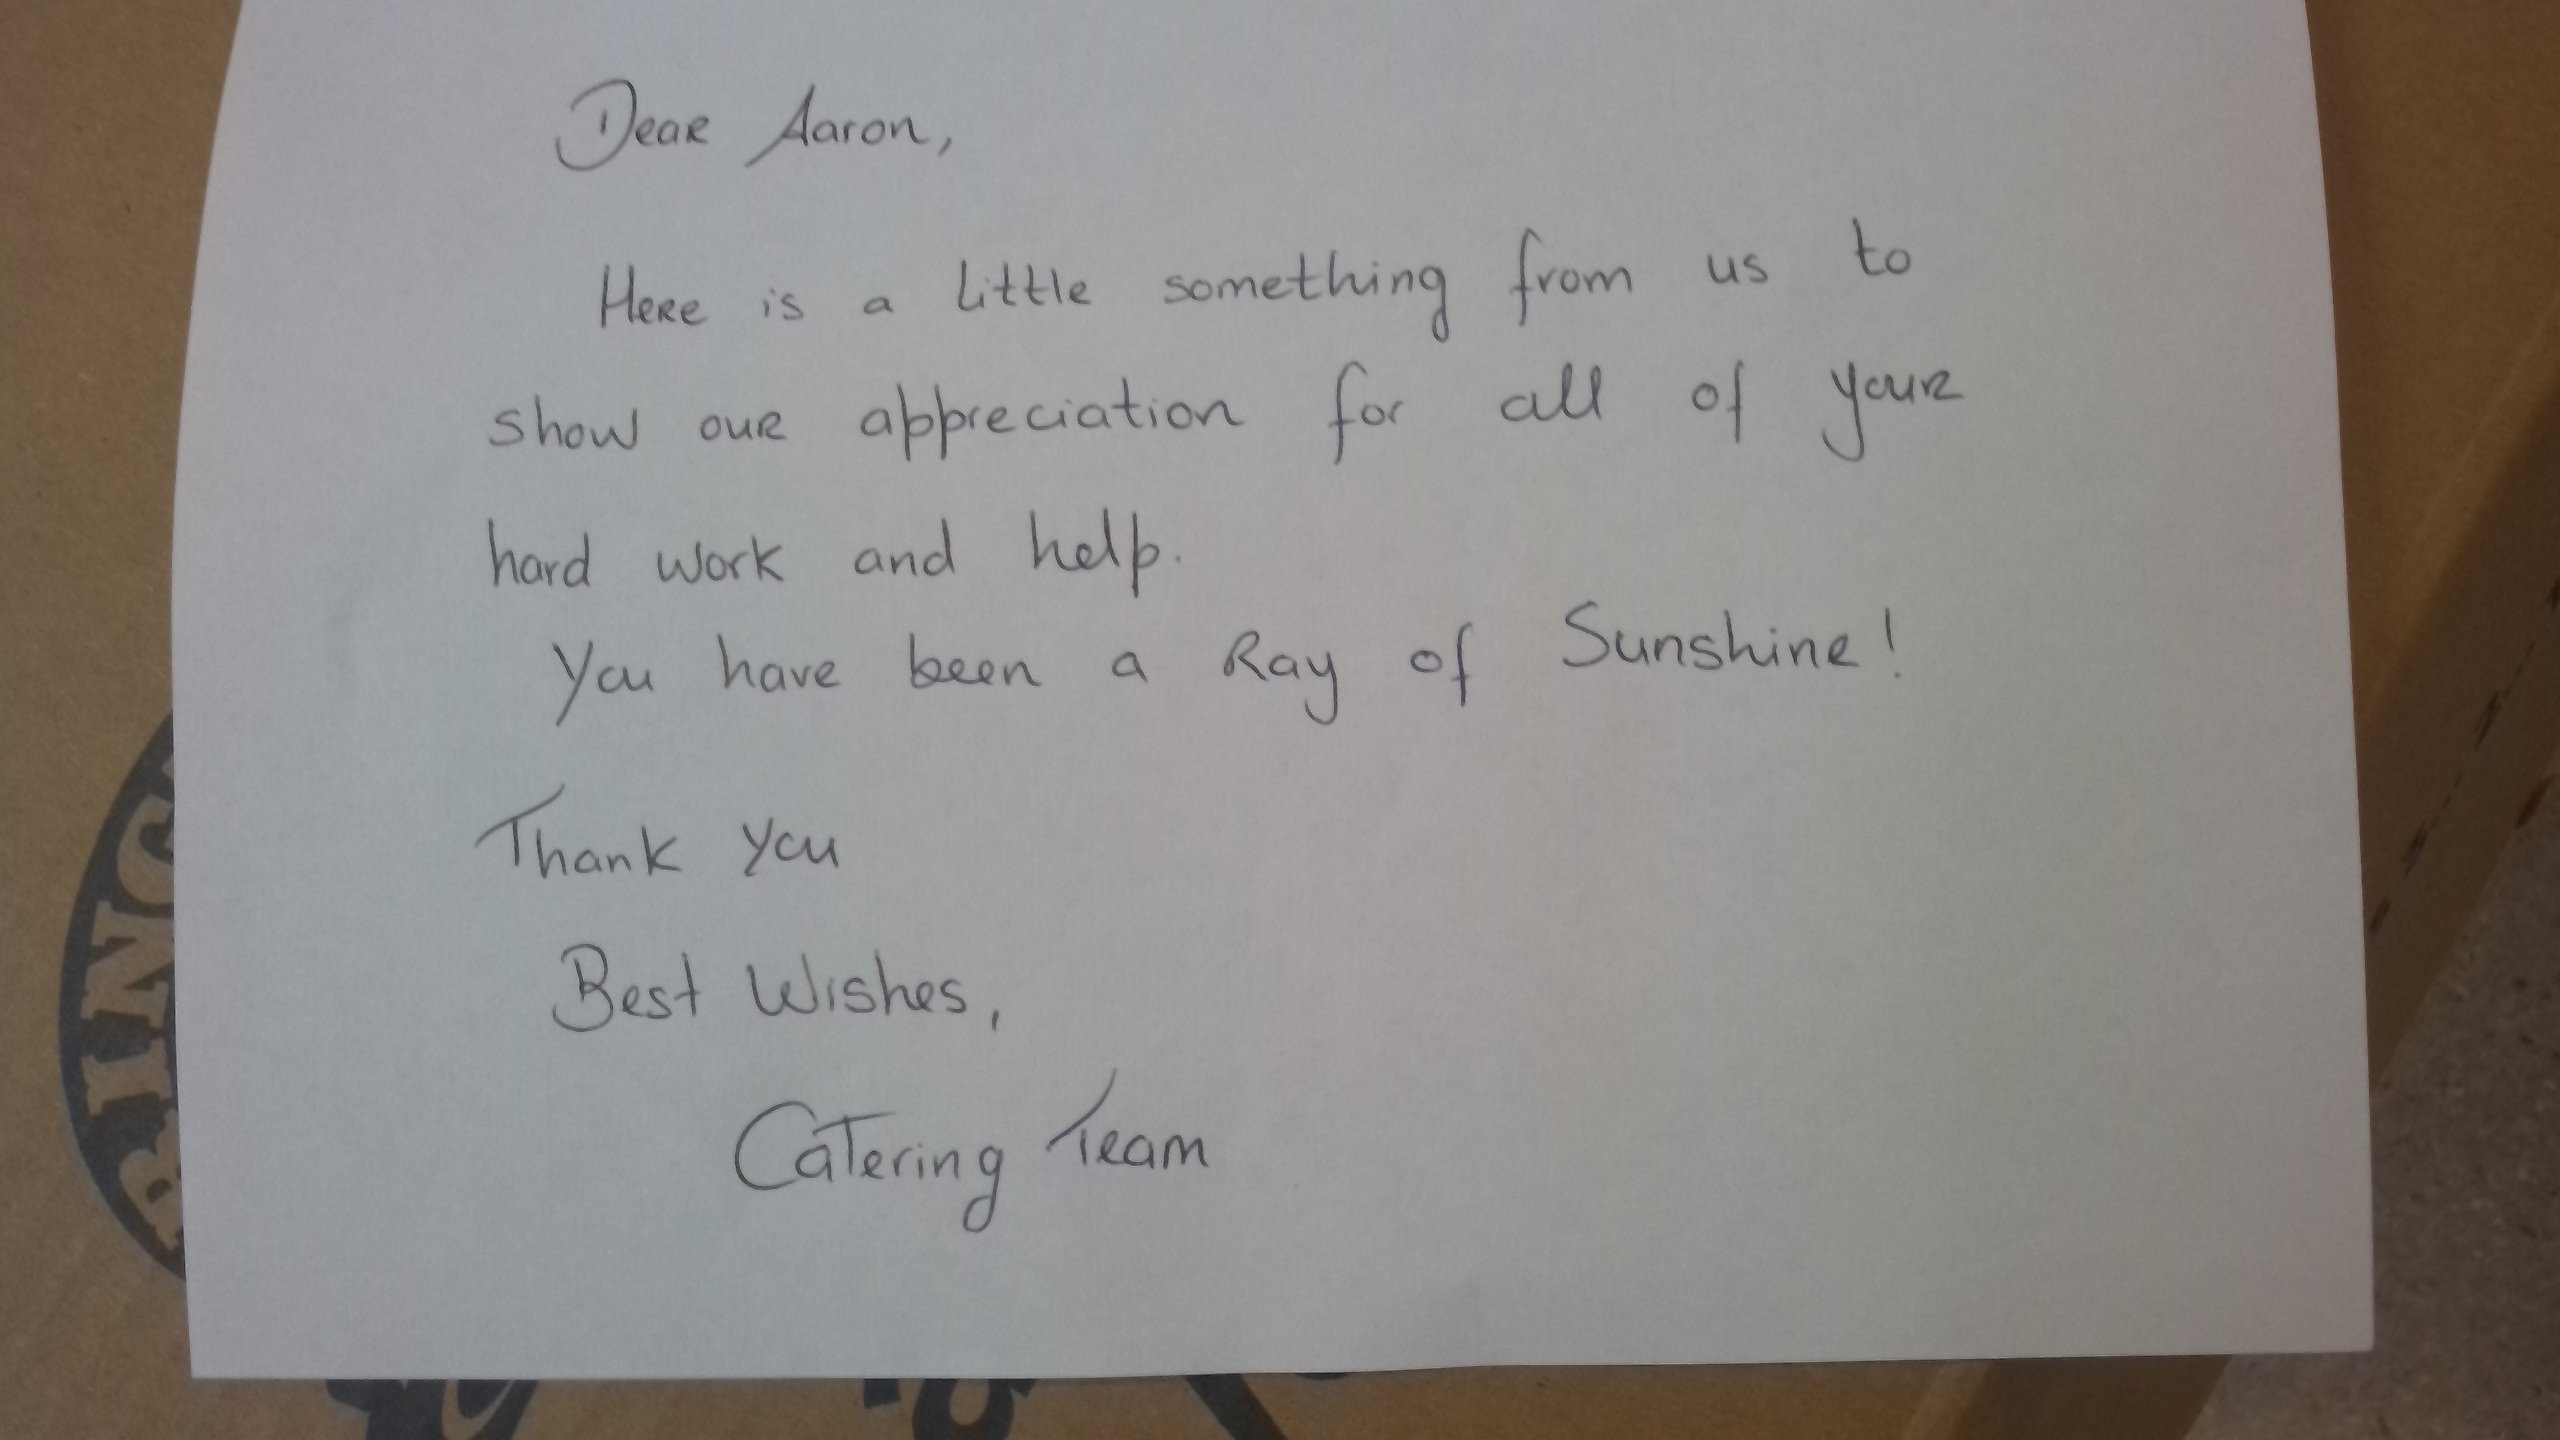 Dear Aaron,
Here is a little something from us to
show our appreciation for all of your
hard work and help.
You have been a Ray of Sunshine!
Thank you
Best Wishes,
Catering Team